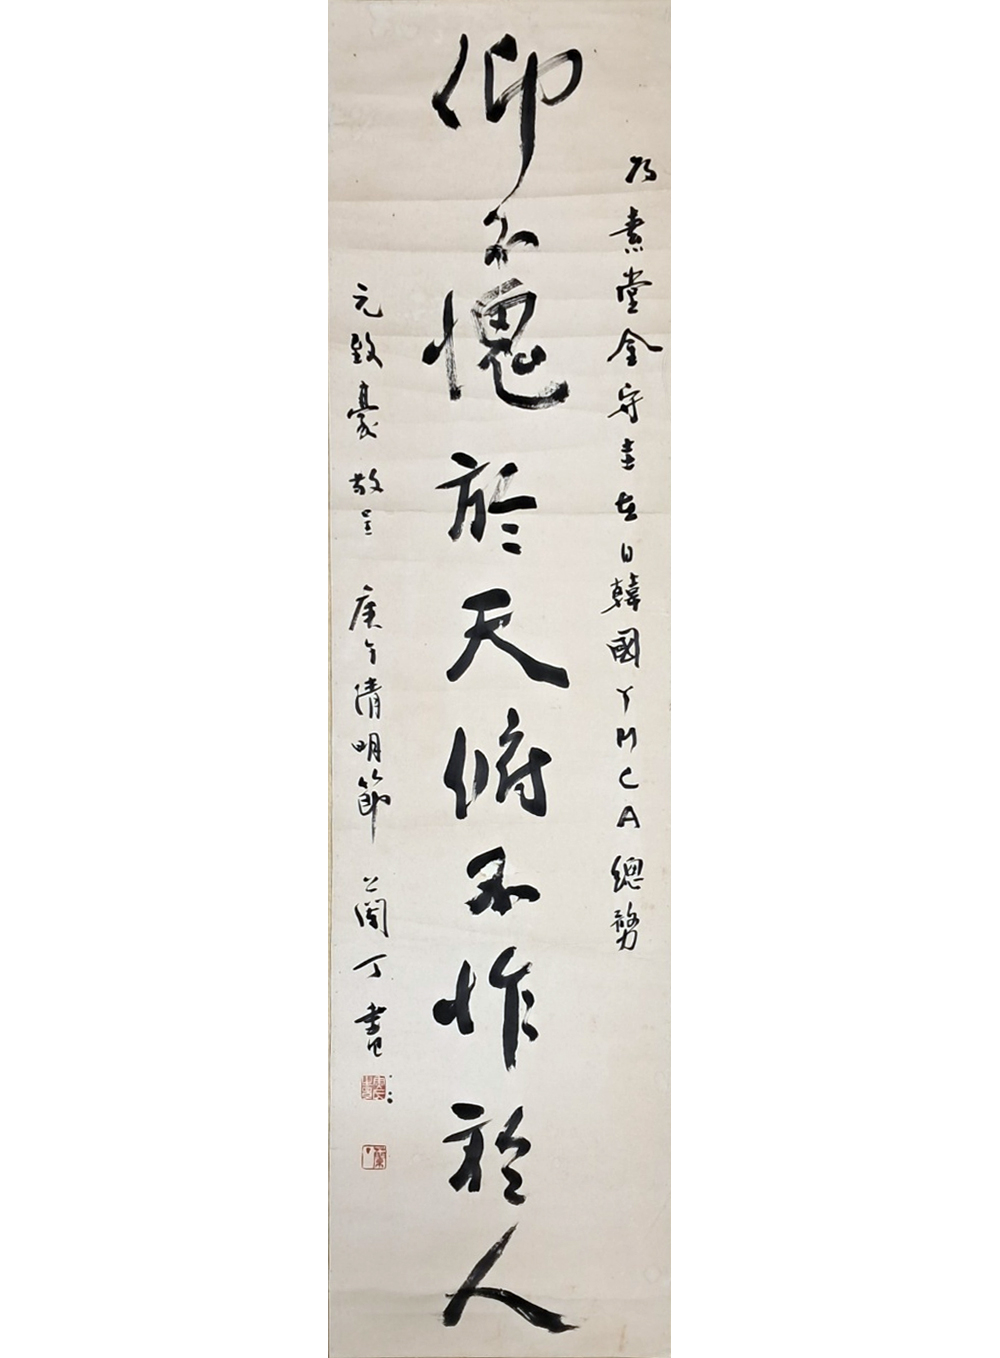 為素堂金守圭在日韓國YMCA總務
仰不愧於天俯不怍於人
元致豪敬呈 庚午清明節 蘭丁書